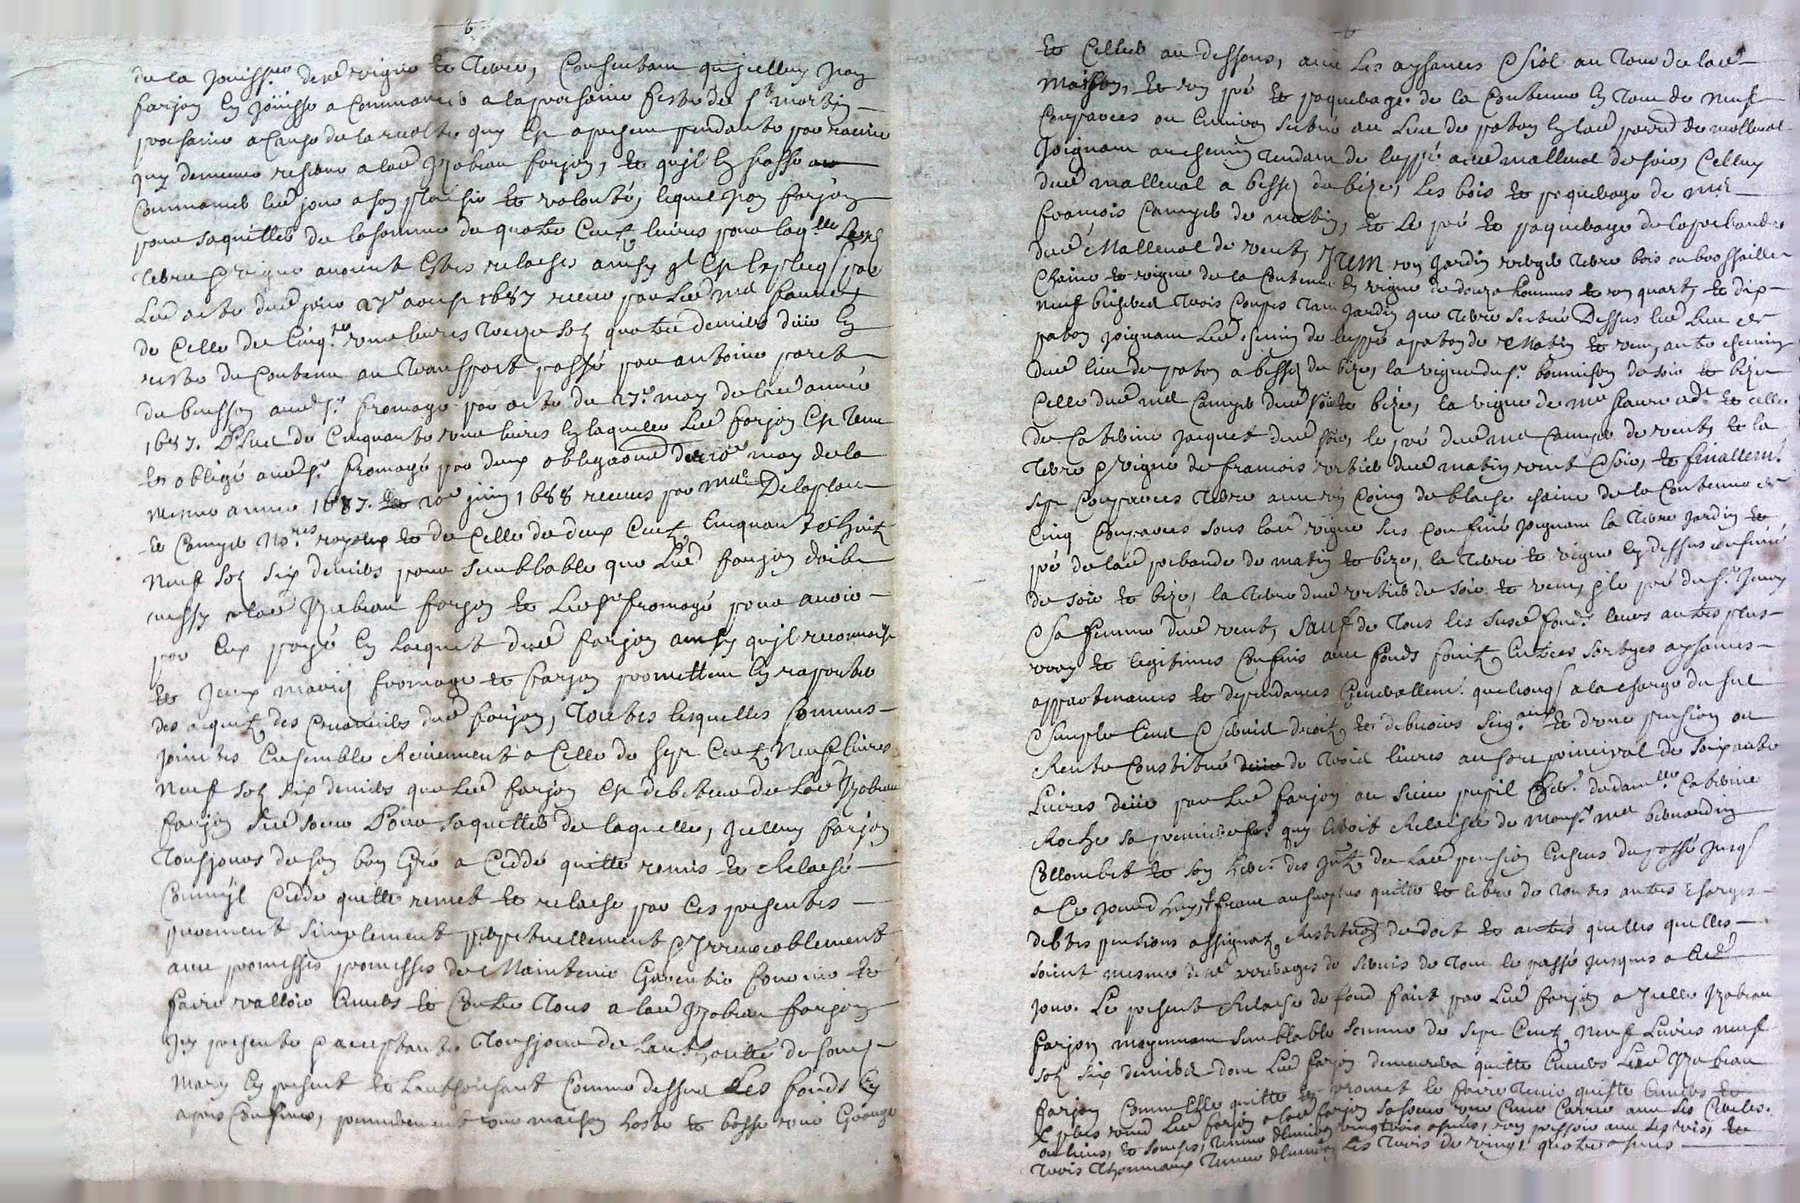 de la jouissce desd vigne et terre, Consentant qu'jcelluy jean
farjon en joüisse a Commancer a la prochaine feste de st martin
prochaine a Cause de la recolte quy est apresent pendante par racine
quy demeure reservee a lad jzabeau farjon, et qu'jl en fasse
Commancer led jour a son plaisir et volonté, lequel jean farjon
pour s'aquitter de la somme de quatre Cent livres pour laqlle lesd
terre & vigne avoient estés relaches ainsy ql est expliqé par
led acte dud jour 27e avril 1687 receu par led me faure
de Celle de Cinqte une livres treize solz quatre deniers düe en
reste du Contenu au transport passé par antoine paret
du buisson aud sr fromage par acte du 27e may de lad année
1687. Plus de Cinquante une livres en laquelle led farjon est tenu
et obligé aud sr fromage par deux obligaons du may de la
mesme année 1687. et juin 1688 receues par mes Delaplace
et Camyer nores royaux et de Celle de deux Cent Cinquante huit
neuf solz six deniers pour semblable que led farjon doibt
aussy a lad jzabeau farjon et aud sr fromage pour avoir
par eux payé en l'acquit dud farjon ainsy qu'jl reconnoist
et jceux mariés fromage et farjon promettent en rapporter
des acquitz des Creanciers dud farjon, toutes lesquelles sommes
jointes Ensemble Reviennent a Celle de sept Cent Neuf livres
neuf solz six deniers que led farjon est debiteur de lad jzabeau
farjon sad soeur Pour s'aquitter de laquelle, jcelluy farjon
tousjours de son bon Gré a Ceddé quitté remis et Relaché
Comm'jl Cedde quitte remet et relache par Ces presentes
purement simplement perpetuellement & jrrevocablement
avec promesses promesses de Maintenir Garentir fournir et
faire valloir Envers et Contre tous a lad jzabeau farjon
jcy presente & aceptante tousjours de l'authorité de sond
mary en present et l'authorisant Comme dessus Les fonds Cy
apres Confinés, premierement une maison haste et basse une Grange
et Cellier au dessous, avec les aysances & siol au tour de lad
Maison, et un pré et paquerage de la Contenue en tout de neuf
Couparées ou Environ situé au lieu de paton en lad parre de malleval
joignant au chemin tendant de luppé aud malleval de soir, Celluy
dud malleval a bessey de bize, les bois et paquerage de me
françois Camyer de matin, et le pré et paquerage de la prebande
dud Malleval de vent, Jtem un jardin verger terre bois ou brossaille
Chaine et vigne de la Contenue en vigne de douze hommes et un quart, et dix
neuf bichets trois Coupes tant jardin que terre situé Dessus led lieu de
paton joignant led chemin de luppé a paton de Matin et vent, autre chemin
dud lieu de paton a bessey de bize, la vigne du sr bonnison de soir et bize
Celle dud me Camyer dud soir et bize, la vigne de me faure et Celle
de Catherine jacquet dud soir, le pré dud me Camyer de vent, et la
terre & vigne de francois verrier dud matin vent & soir, et finallemt
sept Couparées terre avec un Coing de blache chaine de la Contenue de
Cinq Couparées sous lad vigne sus Confinée joignant la terre jardin et
pré de lad prebande de matin et bize, la terre et vigne cy dessus confinée
de soir et bize, la terre dud verrier de soir et vent, & le pré du sr
& sa femme dud vent, Sauf de tous les susd fondz leurs autres plus
vray et legitimes Confins avec fonds fruitz Entrées sorties aysances
appartenances et dependances Generallemt quelconqs a la charge du sul
& simple Cens & servis droitz et debvoirs Seigaux et d'une pension ou
Rente Constituée de trois livres au sort principal de soixante
Livres düe par led farjon au sieur pupil de damlle Catherine
Roche sa premiere fe quy l'avoit Relachée de monsr me bernardin
Collombet et son des jntz de lad pension Escheus du passé jusqs
a Ce jourd'huy, & franc au surplus quitte et libre de toutes autres charges
debtes pensions assignatz restitution de dot et autres quelles quelles
soient mesme desd arrerages de servis de tout le passé jusques a Cedt
jour. Le present Relache de fond fait par led farjon a jcelle jzabeau
farjon moyennant semblable somme de sept Cent Neuf livres neuf
solz six deniers dont led farjon demeurera quitte Envers lad jzabeau
farjon Comm'Elle quitte et promet le faire tenir quitte Envers et
Et plus vend led farjon a lad farjon sa soeur une Cuve Carrée avec ses Cercles.
trois thonneaux tenue d'Environ les trois de vingt quatre asnées